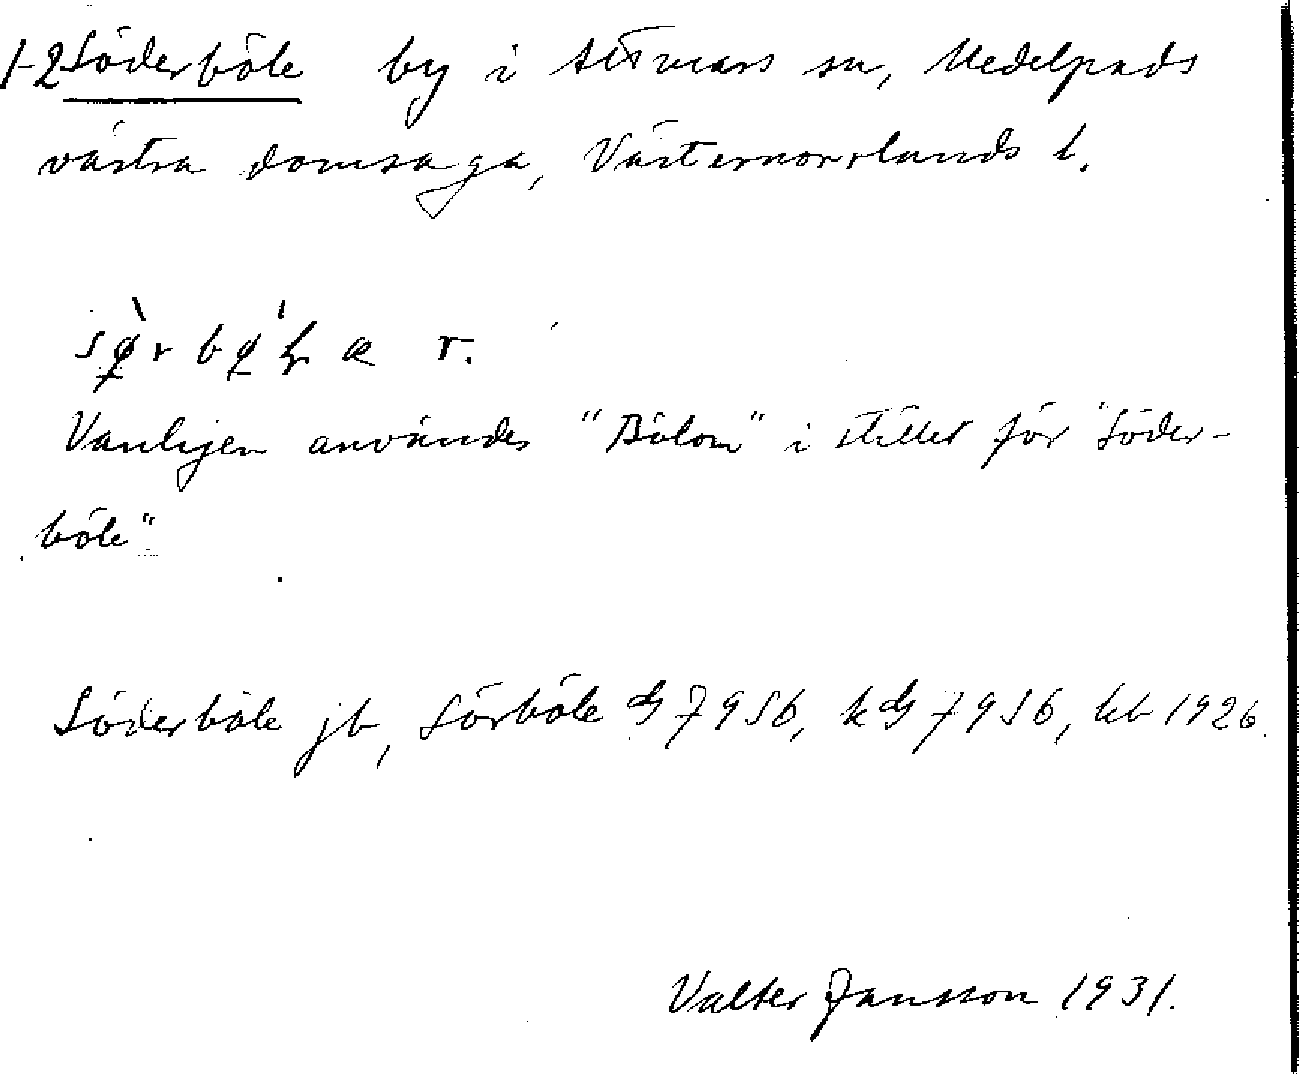 1-2 Söderböle by i Attmars sn, Medelpads
västra domsaga, Västernorrlands l.
r.
Vanligen användes "Bölom" i stället för "Söder-
böle"
Söderböle jb, Sörböle GJ 7956, kGJ 7956, kb 1926.
Valter Jansson 1931.